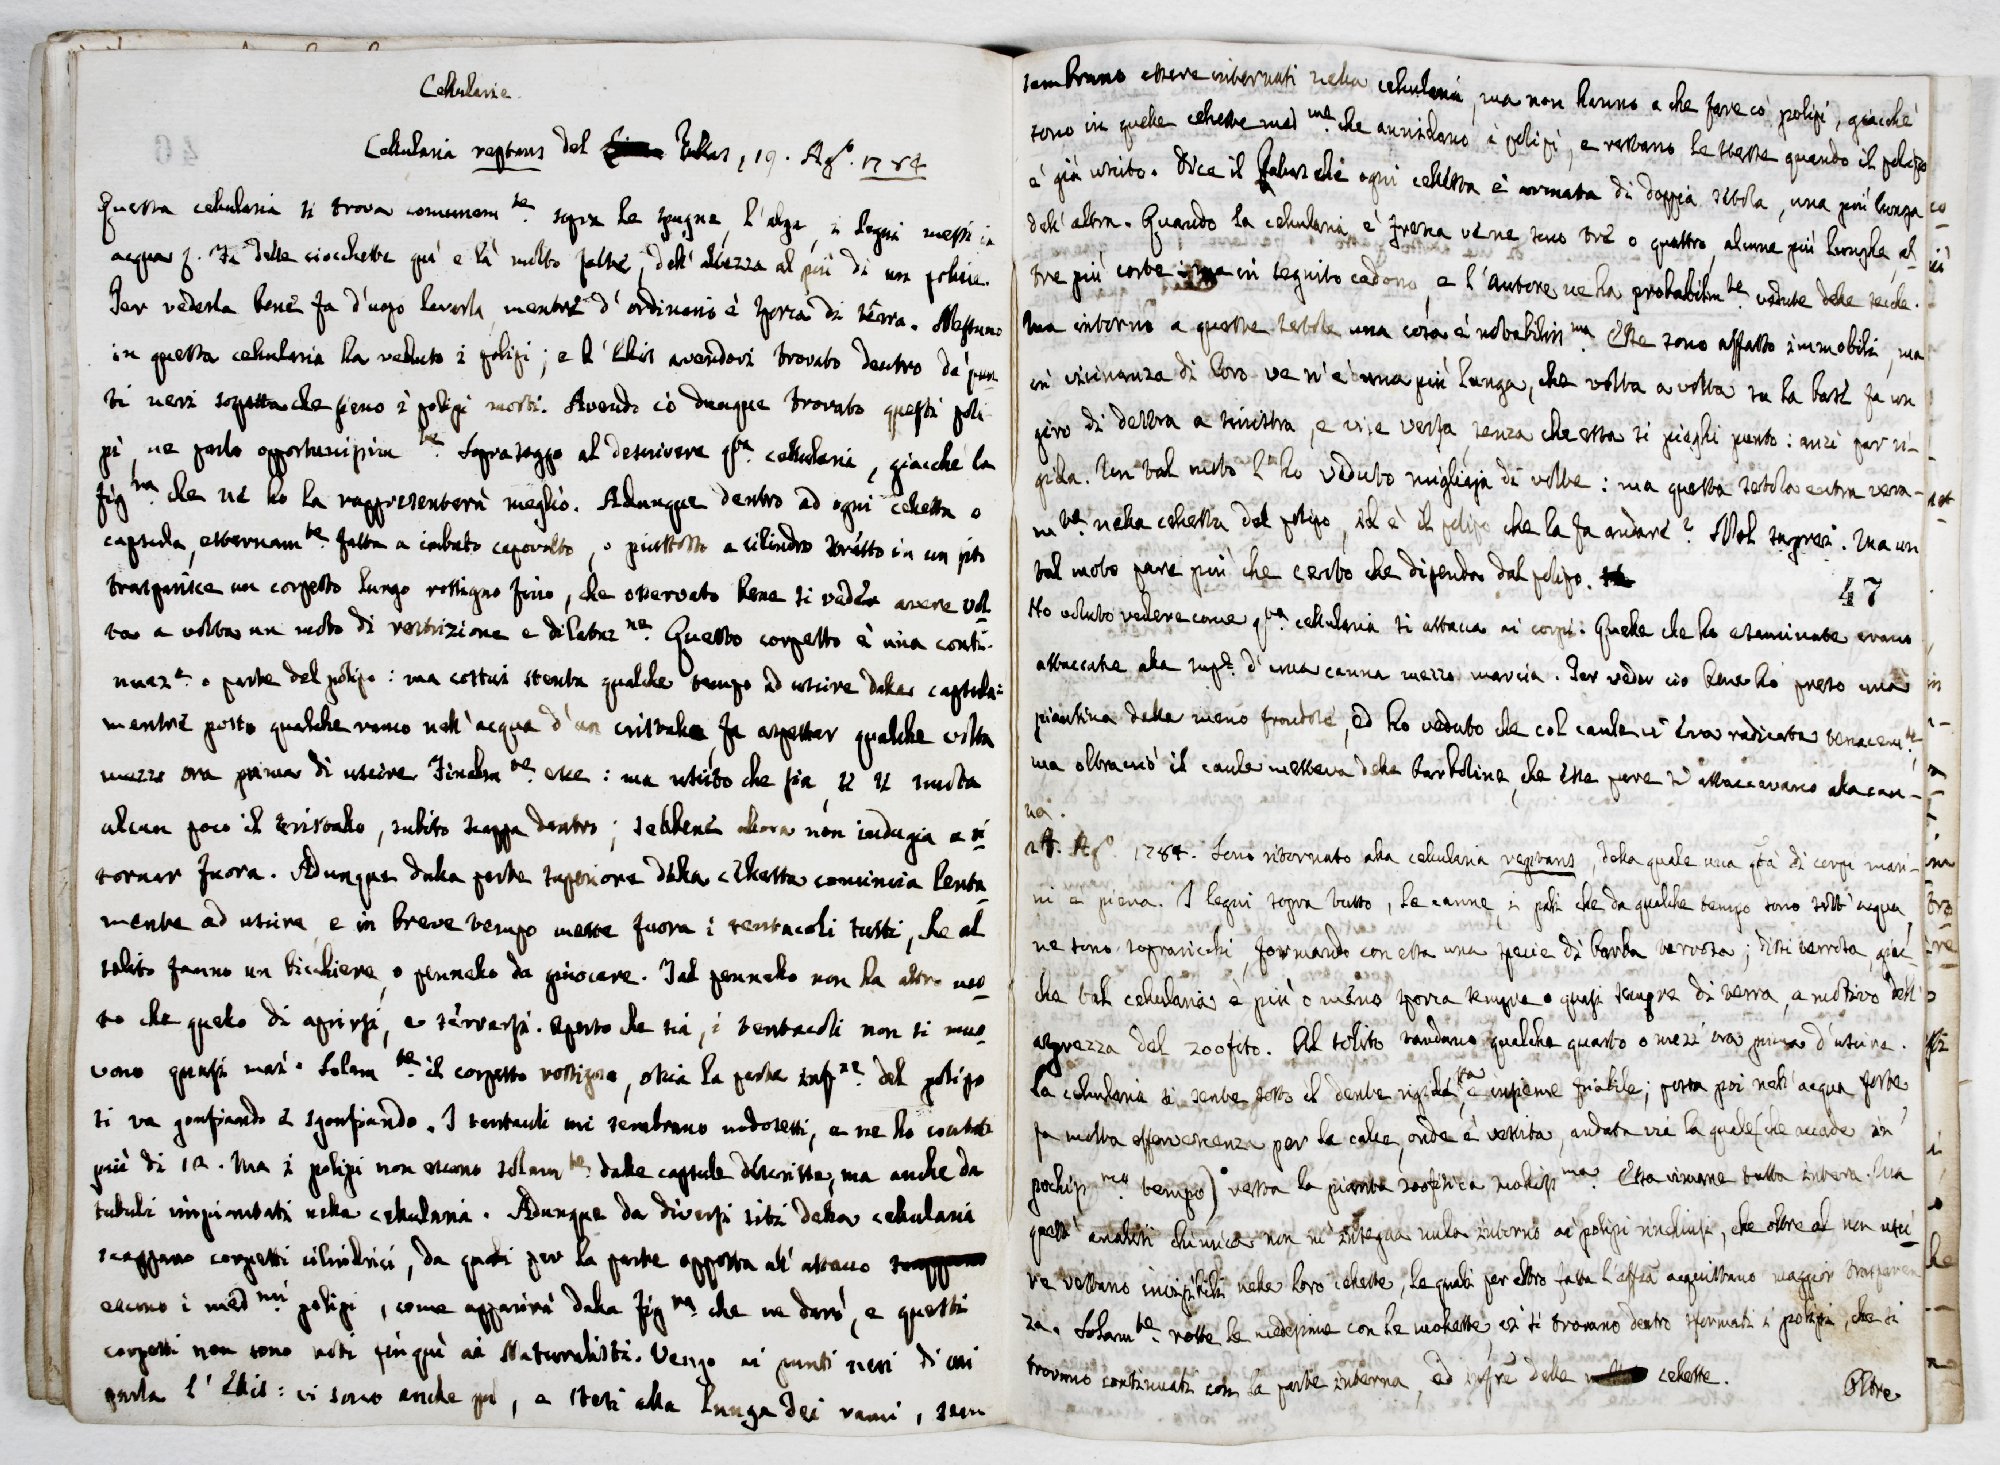 Cellularie.
Cellularia reptans del Pallas, 19. Ag.º 1784
Questa cellularia si trova comunem.te sopra le spugne, l'alga, i legni messi in
acqua. Fa delle ciocchette quì e là molto folte, dell'altezza al più di un pollice.
Per vederla bene fa d'uopo lavarla, mentre d'ordinario è sporca di terra. Nessuno
in questa cellularia ha veduto i polipi; e l'Ellis avendovi trovato dentro de' pun
ti neri sospetta che sieno i polipi morti. Avendo io dunque trovato questi poli
pi, ne parlo opportunissim.te Soprasseggo al descrivere q.ta cellularia, giacchè la
fig.ra che ne ho la rappresenterà meglio. Adunque dentro ad ogni celletta o
capsula, esternam.te fatta a imbuto capovolto, o piuttosto a cilindro stretto in un pto
trasparisce un corpetto lungo rossigno fino, che osservato bene si vede avere vol
ta a volta un moto di restrizione e dilataz.ne Questo corpetto è una conti-
nuaz.e o parte del polipo: ma costui stenta qualche tempo ad uscire dalla capsula:
mentre posto qualche ramo nell'acqua d'un cristallo, fa aspettar qualche volta
mezza ora prima di uscire. Finalm.te esce: ma uscito che sia, se si muova
alcun poco il cristallo, subito scappa dentro; sebbene allora non indugia a ri
tornar fuora. Adunque dalla parte superiore della celletta comincia lenta
mente ad uscire, e in breve tempo mette fuora i tentacoli tutti, che al
solito fanno un bicchiere, o pennello da giuocare. Tal pennello non ha altro mo
to che quello di aprirsi, e serrarsi. Aperto che sia, i tentacoli non si muo
vono quasi mai. Solam.te il corpetto rossigno, ossia la parte inf.re del polipo
si va gonfiando e sgonfiando. I tentacoli mi sembrano nodosetti, e ne ho contati
più di 12. Ma i polipi non escono solam.te dalle capsule descritte, ma anche da
tubuli impiantati nella cellularia. Adunque da diversi siti della cellularia
scappano corpetti cilindrici, da quali per la parte opposta all'attacco
escono i med.mi polipi, come apparirà dalla fig.ra che ne darò, e questi
corpetti non sono noti finquì ai Naturalisti. Vengo ai punti neri di cui
parla l'Ellis: vi sono anche quì, e stesi alla lunga dei rami, sem
sembrano essere internati nella cellularia, ma non hanno a che fare co' polipi, giacchè
sono in quelle cellette med.me che annidano i polipi, e restano le stesse quando il polipo
è già uscito. Dice il Pallas che ogni celletta è armata di doppia setola, una più lunga
dell'altra. Quando la cellularia è fresca ve ne sono tre o quattro, alcune più lunghe, al
tre più corte: ma in seguito cadono, e l'Autore ne ha probabilm.te vedute delle secche.
Ma intorno a queste setole una cosa è notabiliss.ma Esse sono affatto immobili, ma
in vicinanza di loro ve n'è una più lunga, che volta a volta su la base fa un
giro di destra a sinistra, e vice versa, senza che essa si pieghi punto: anzi par ri-
gida. Un tal moto l'ho veduto migliaja di volte: ma questa setola entra vera-
m.te nella celletta del polipo, ed è il polipo che la fa andare? Nol saprei. Ma un
tal moto pare più che certo che dipenda dal polipo.
47
Ho voluto vedere come q.ta cellularia si attacca ai corpi. Quelle che ho esaminate erano
attaccate alla sup.e d'una canna mezzo marcia. Per veder ciò bene ho preso una
piantina delle meno frondose, ed ho veduto che col caule vi era radicata tenacem.te,
ma oltracciò il caule metteva delle barboline, che esse pure s'attaccavano alla can-
na.
24. Ag.º 1784. Sono ritornato alla cellularia reptans, dalla quale una q.tà di corpi mari-
ni è piena. I legni sopra tutto, le canne, i pali che da qualche tempo sono sott'acqua
ne sono sopraricchi, formando con essa una specie di barba terrosa; dissi terrosa, giac
che tal cellularia è più o meno sporca sempre o quasi sempre di terra, a motivo dell'
asprezza del zoofito. Al solito tardano qualche quarto o mezz'ora prima d'uscire.
La cellularia si sente sotto il dente rigidetta, e insieme friabile; posta poi nell'acqua forte
fa molta effervescenza per la calce, onde è vestita, andata via la quale (che accade in
pochiss.mo tempo) resta la pianta zoofitica molliss.ma Essa rimane tutta intera. Ma
quest'analisi chimica non m'insegna nulla intorno ai polipi rinchiusi, che oltre al non usci
re restano invisibili nelle loro cellette, le quali per altro fatta l'effza acquistano maggior trasparen
za. Solam.te rotte le medesime con le mollette ci si trovano dentro sformati i polipi, che si
trovano continuati con la parte interna, ed infre delle cellette.
Oltre